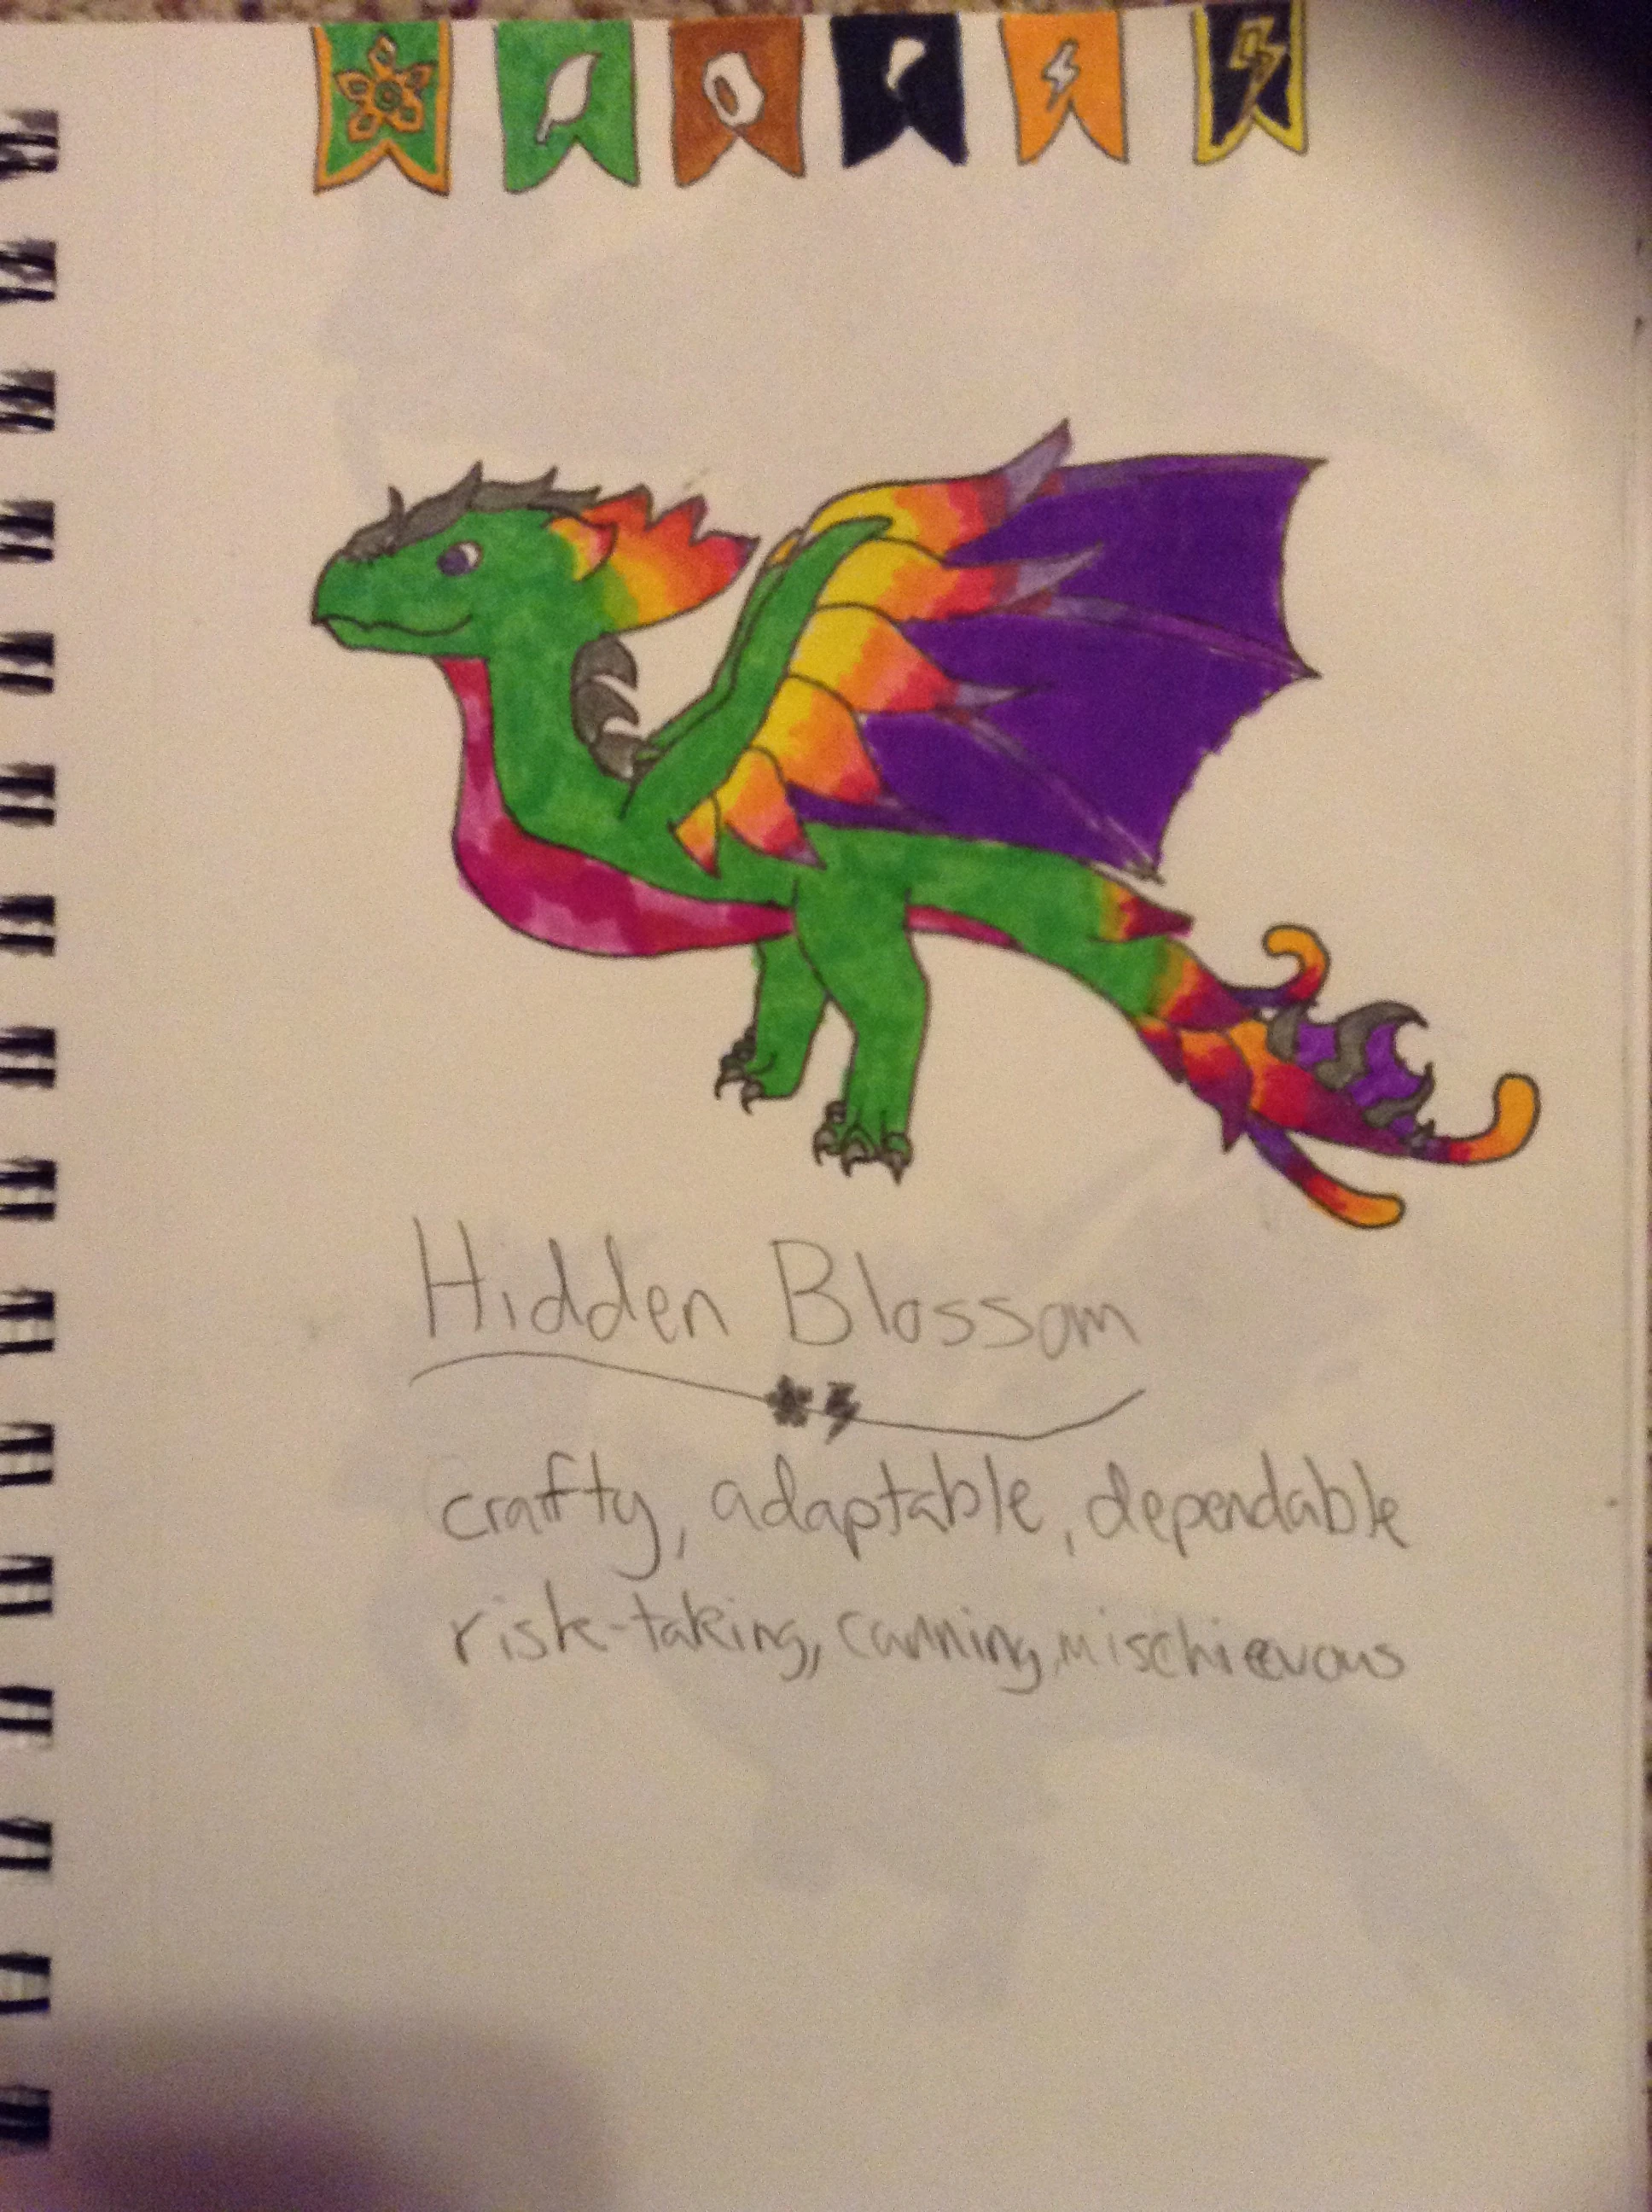 Hidden Blossom
crafty, adaptable, dependable
risk-taking, cunning, mischieevous